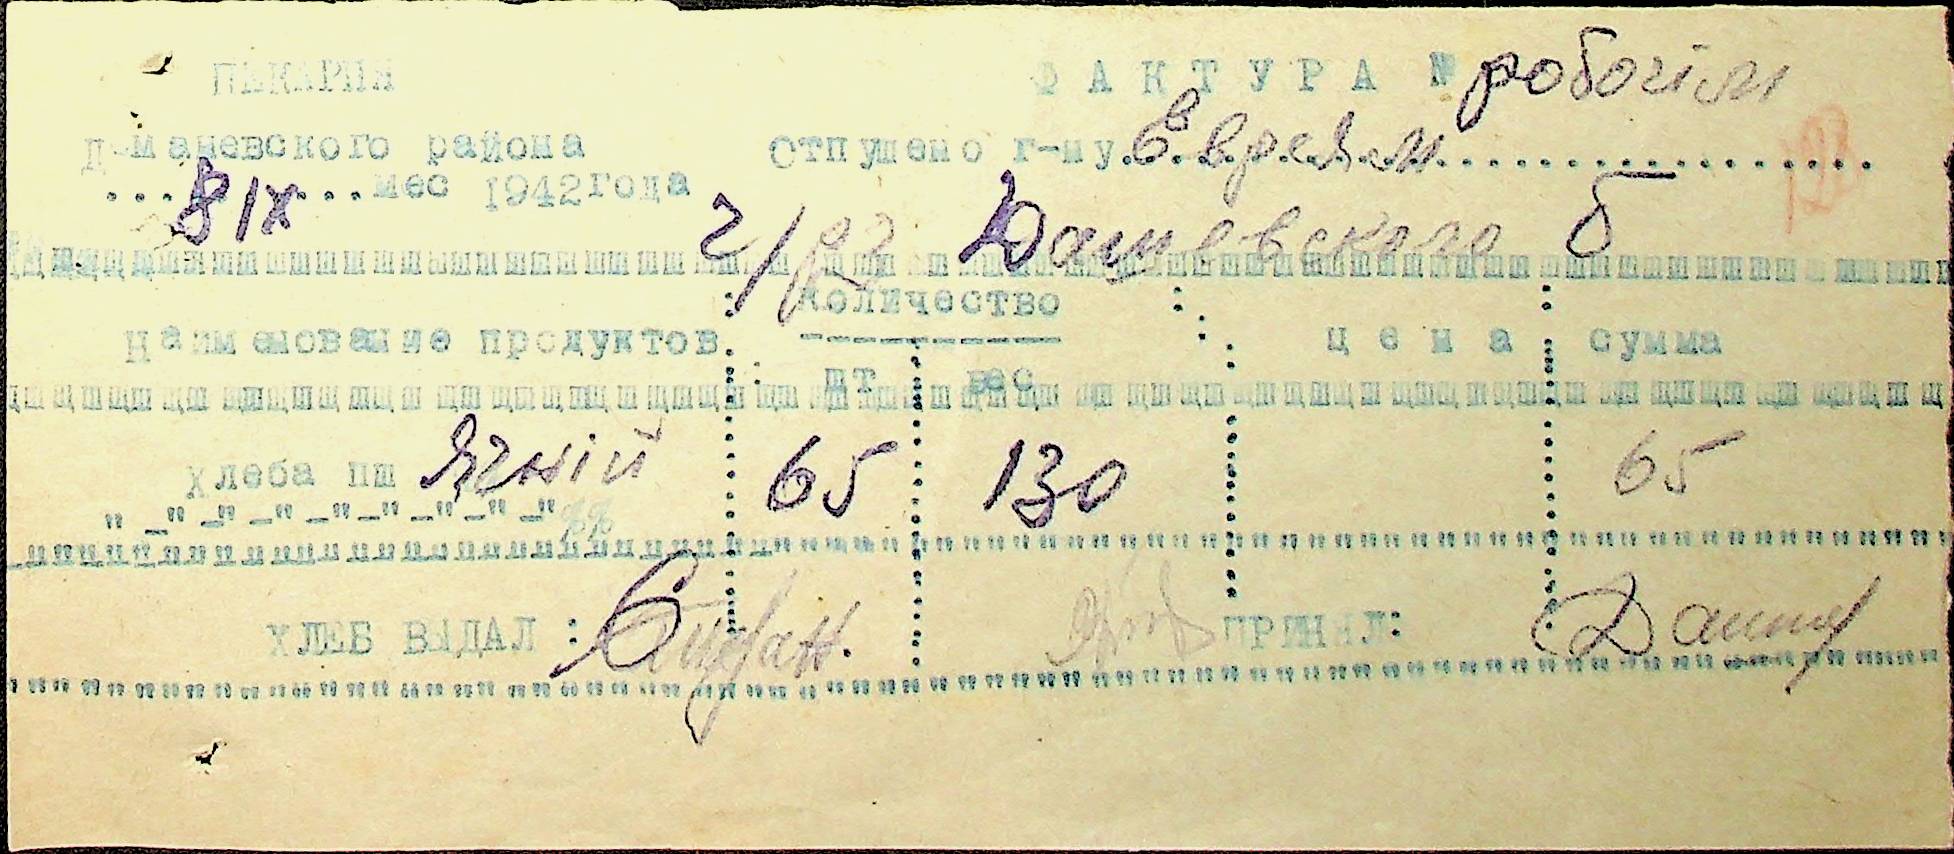 ПЕКАРНЯ
ФАКТУРА № робочім
Д-маневского района
Отпущено г-ну. Евреям
8 IX мес 1942 года
ч/ Дашевского Б
Наименование продуктов
Количество
цена
сумма
шт вес
хлеба пш Ячній 65 130 65
ХЛЕБ ВЫДАЛ:
ПРИНЯЛ: Дашев